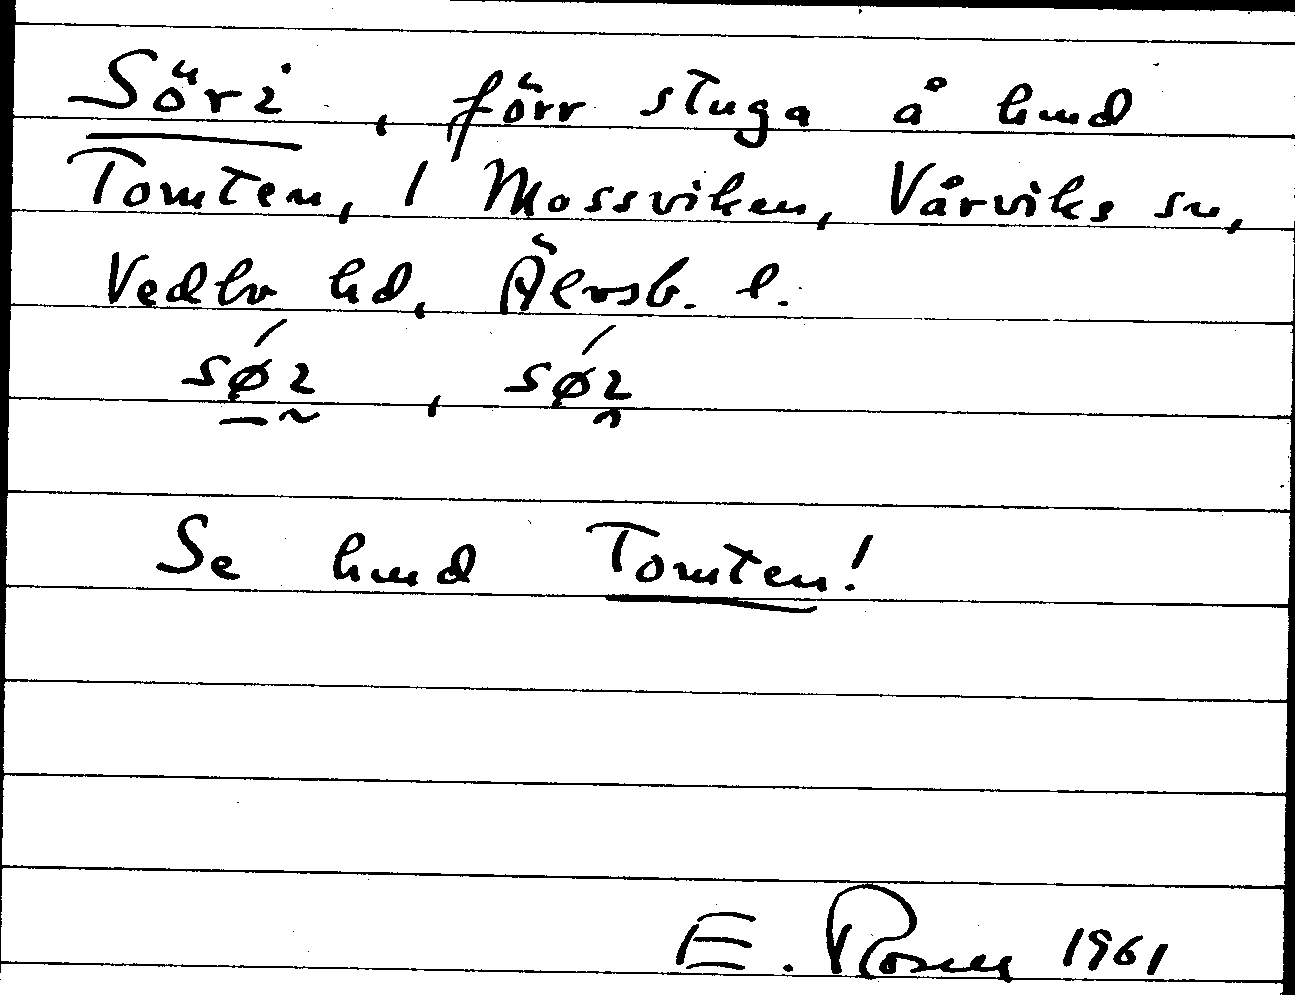 Söri, förr stuga å hmd
Tomten, 1 Mossviken, Vårviks sn,
Vedbo hd, Älvsb. l.
Se hmd Tomten!
E. Rosen 1961